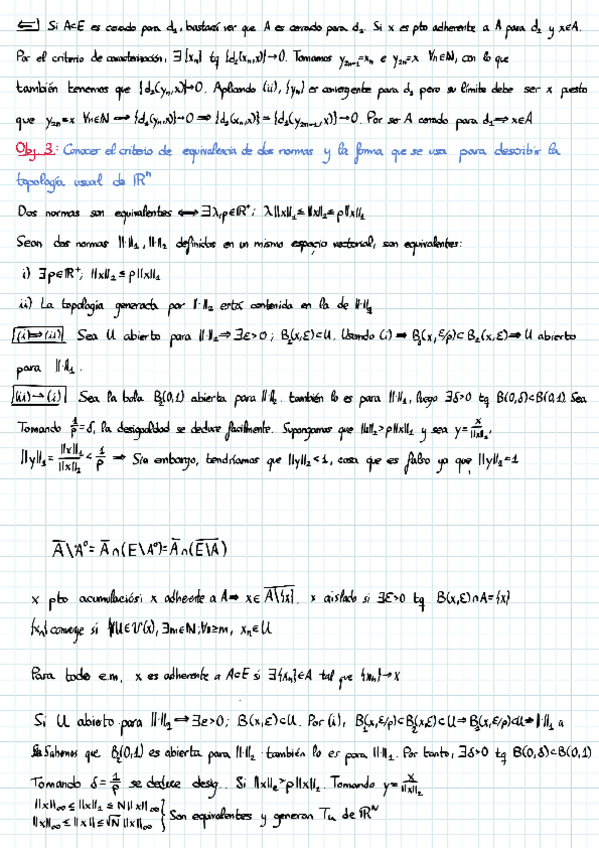 ⇐ Si A⊂E es cerrado para d₂, bastará ver que A es cerrado para d₁. Si x es pto adherente a A para d₁ y x∈A.
Por el criterio de caracterización, ∃{xₙ} tq {d₁(xₙ,x)}→0. Tomamos y₂ₙ₋₁=xₙ e y₂ₙ=x ∀n∈N, con lo que
también tenemos que {d₁(yₙ,x)}→0. Aplicando (ii), {yₙ} es convergente para d₂ pero su límite debe ser x puesto
que y₂ₙ=x ∀n∈N ⟹ {d₂(yₙ,x)}→0 ⟹ {d₂(xₙ,x)}={d₂(y₂ₙ₋₁,x)}→0. Por ser A cerrado para d₂⟹x∈A
Obj. 3: Conocer el criterio de equivalencia de dos normas y la forma que se usa para describir la
topología usual de ℝᴺ
Dos normas son equivalentes ⟺ ∃λ,ρ∈ℝ⁺; λ||x||₁≤||x||₂≤ρ||x||₁
Sean dos normas ||·||₁, ||·||₂ definidas en un mismo espacio vectorial, son equivalentes:
i) ∃ρ∈ℝ⁺; ||x||₂≤ρ||x||₁
ii) La topología generada por ||·||₂ está contenida en la de ||·||₁
(i)⟹(ii) Sea U abierto para ||·||₂⟹∃ε>0; B₂(x,ε)⊂U. Usando (i) ⟹ B₁(x,ε/ρ)⊂B₂(x,ε)⟹U abierto
para ||·||₁.
(ii)→(i) Sea la bola B₂(0,1) abierta para ||·||₂. también lo es para ||·||₁, luego ∃δ>0 tq B(0,δ)⊂B(0,1). Sea
Tomando 1/ρ=δ, la desigualdad se deduce fácilmente. Supongamos que ||x||₂>ρ||x||₁ y sea y=x/||x||₂,
||y||₁=||x||₁/||x||₂<1/ρ ⟹ Sin embargo, tendríamos que ||y||₂<1, cosa que es falso ya que ||y||₂=1
A̅\A°=A̅∩(E\A°)=A̅∩(E\A)̅
x pto acumulación si x adherente a A⟹ x∈A\{x}̅. x aislado si ∃ε>0 tq B(x,ε)∩A={x}
{xₙ} converge si ∀U∈U(x), ∃m∈N;∀n≥m, xₙ∈U
Para todo e.m, x es adherente a A⊂E si ∃{xₙ}∈A tal que {xₙ}→x
Si U abierto para ||·||₂⟹∃ε>0; B(x,ε)⊂U. Por (i), B₁(x,ε/ρ)⊂B₂(x,ε)⊂U⟹B₁(x,ε/ρ)⊂U⟹||·||₁ a
Sabemos que B₂(0,1) es abierta para ||·||₂ también lo es para ||·||₁. Por tanto, ∃δ>0 tq B(0,δ)⊂B(0,1)
Tomando δ=1/ρ se deduce desig.. Si ||x||₂>ρ||x||₁. Tomando y=x/||x||₂
||x||∞≤||x||₁≤N||x||∞
||x||∞≤||x||≤√N||x||∞ } Son equivalentes y generan Tu de ℝᴺ